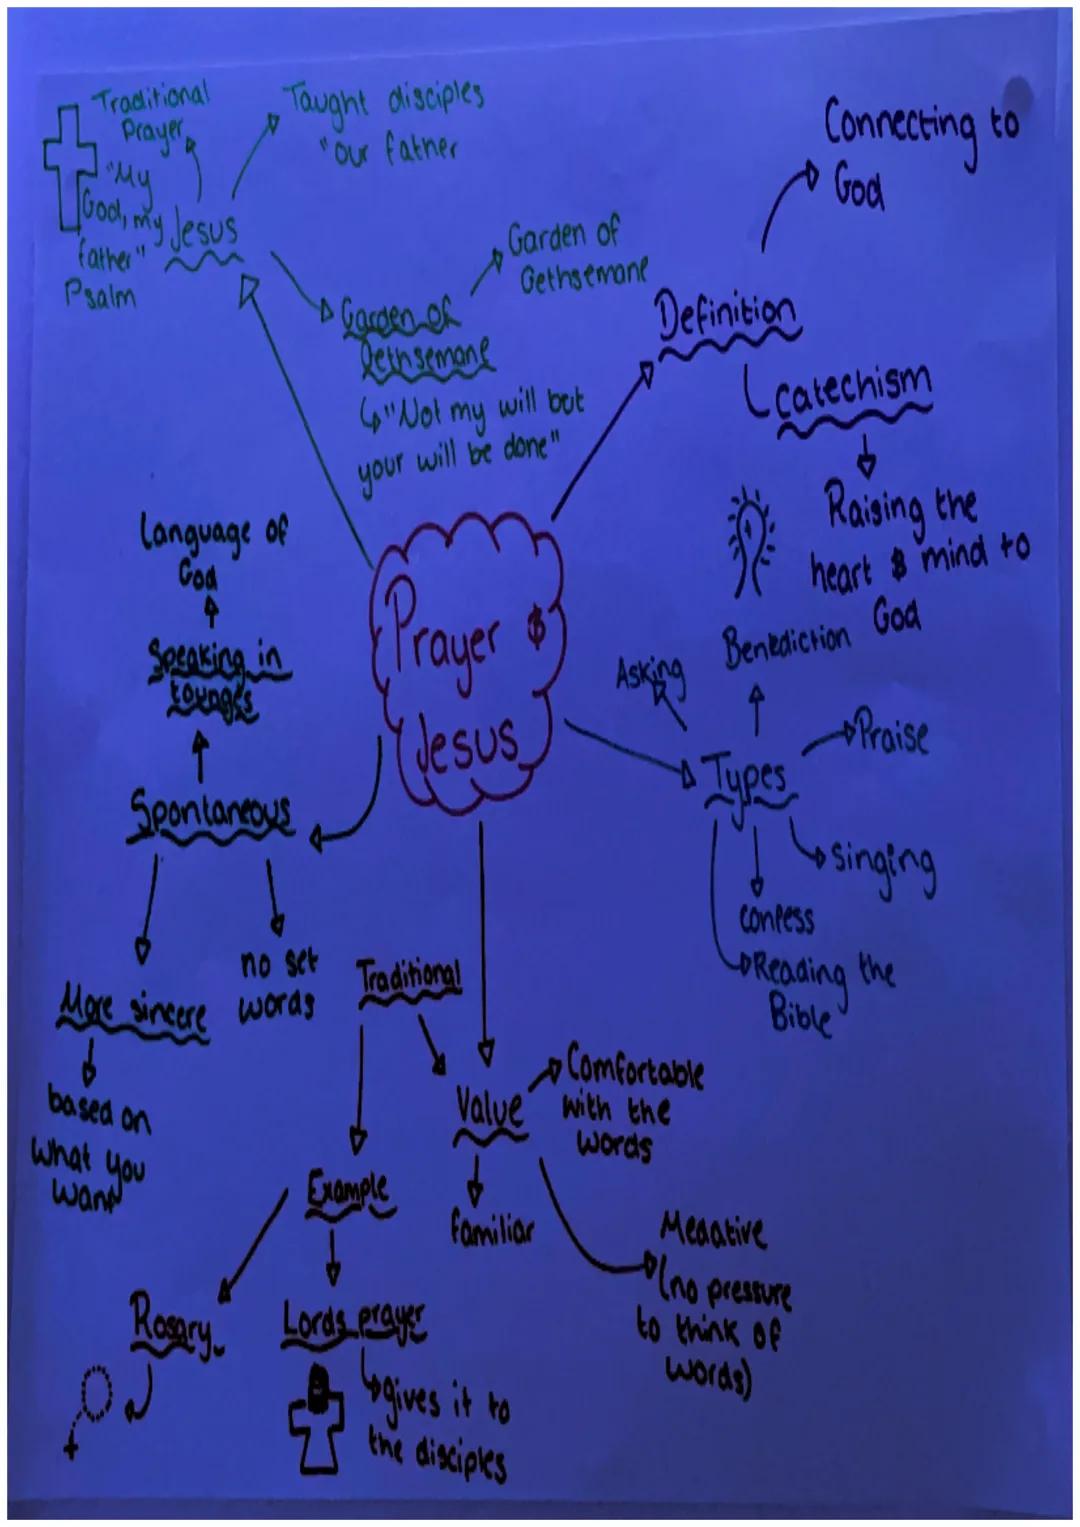 Traditional
Prayer
"My
God, my
father"
Psalm
Jesus
Taught disciples
"our father
Garden of
Gethsemane
"Not my will but
your will be done"
Garden of
Gethsemane
Connecting to
God
Definition
catechism
Raising the
heart & mind to
God
Prayer &
Jesus
Language of
God
Speaking in
tounges
Spontaneous
More sincere
based on
what you
want
no set
words
Asking
Benediction
Praise
Types
singing
confess
Reading the
Bible
Traditional
Value
Comfortable
with the
words
familiar
Medative
(no pressure
to think of
words)
Example
Rosary
Lords prayer
gives it to
the disciples